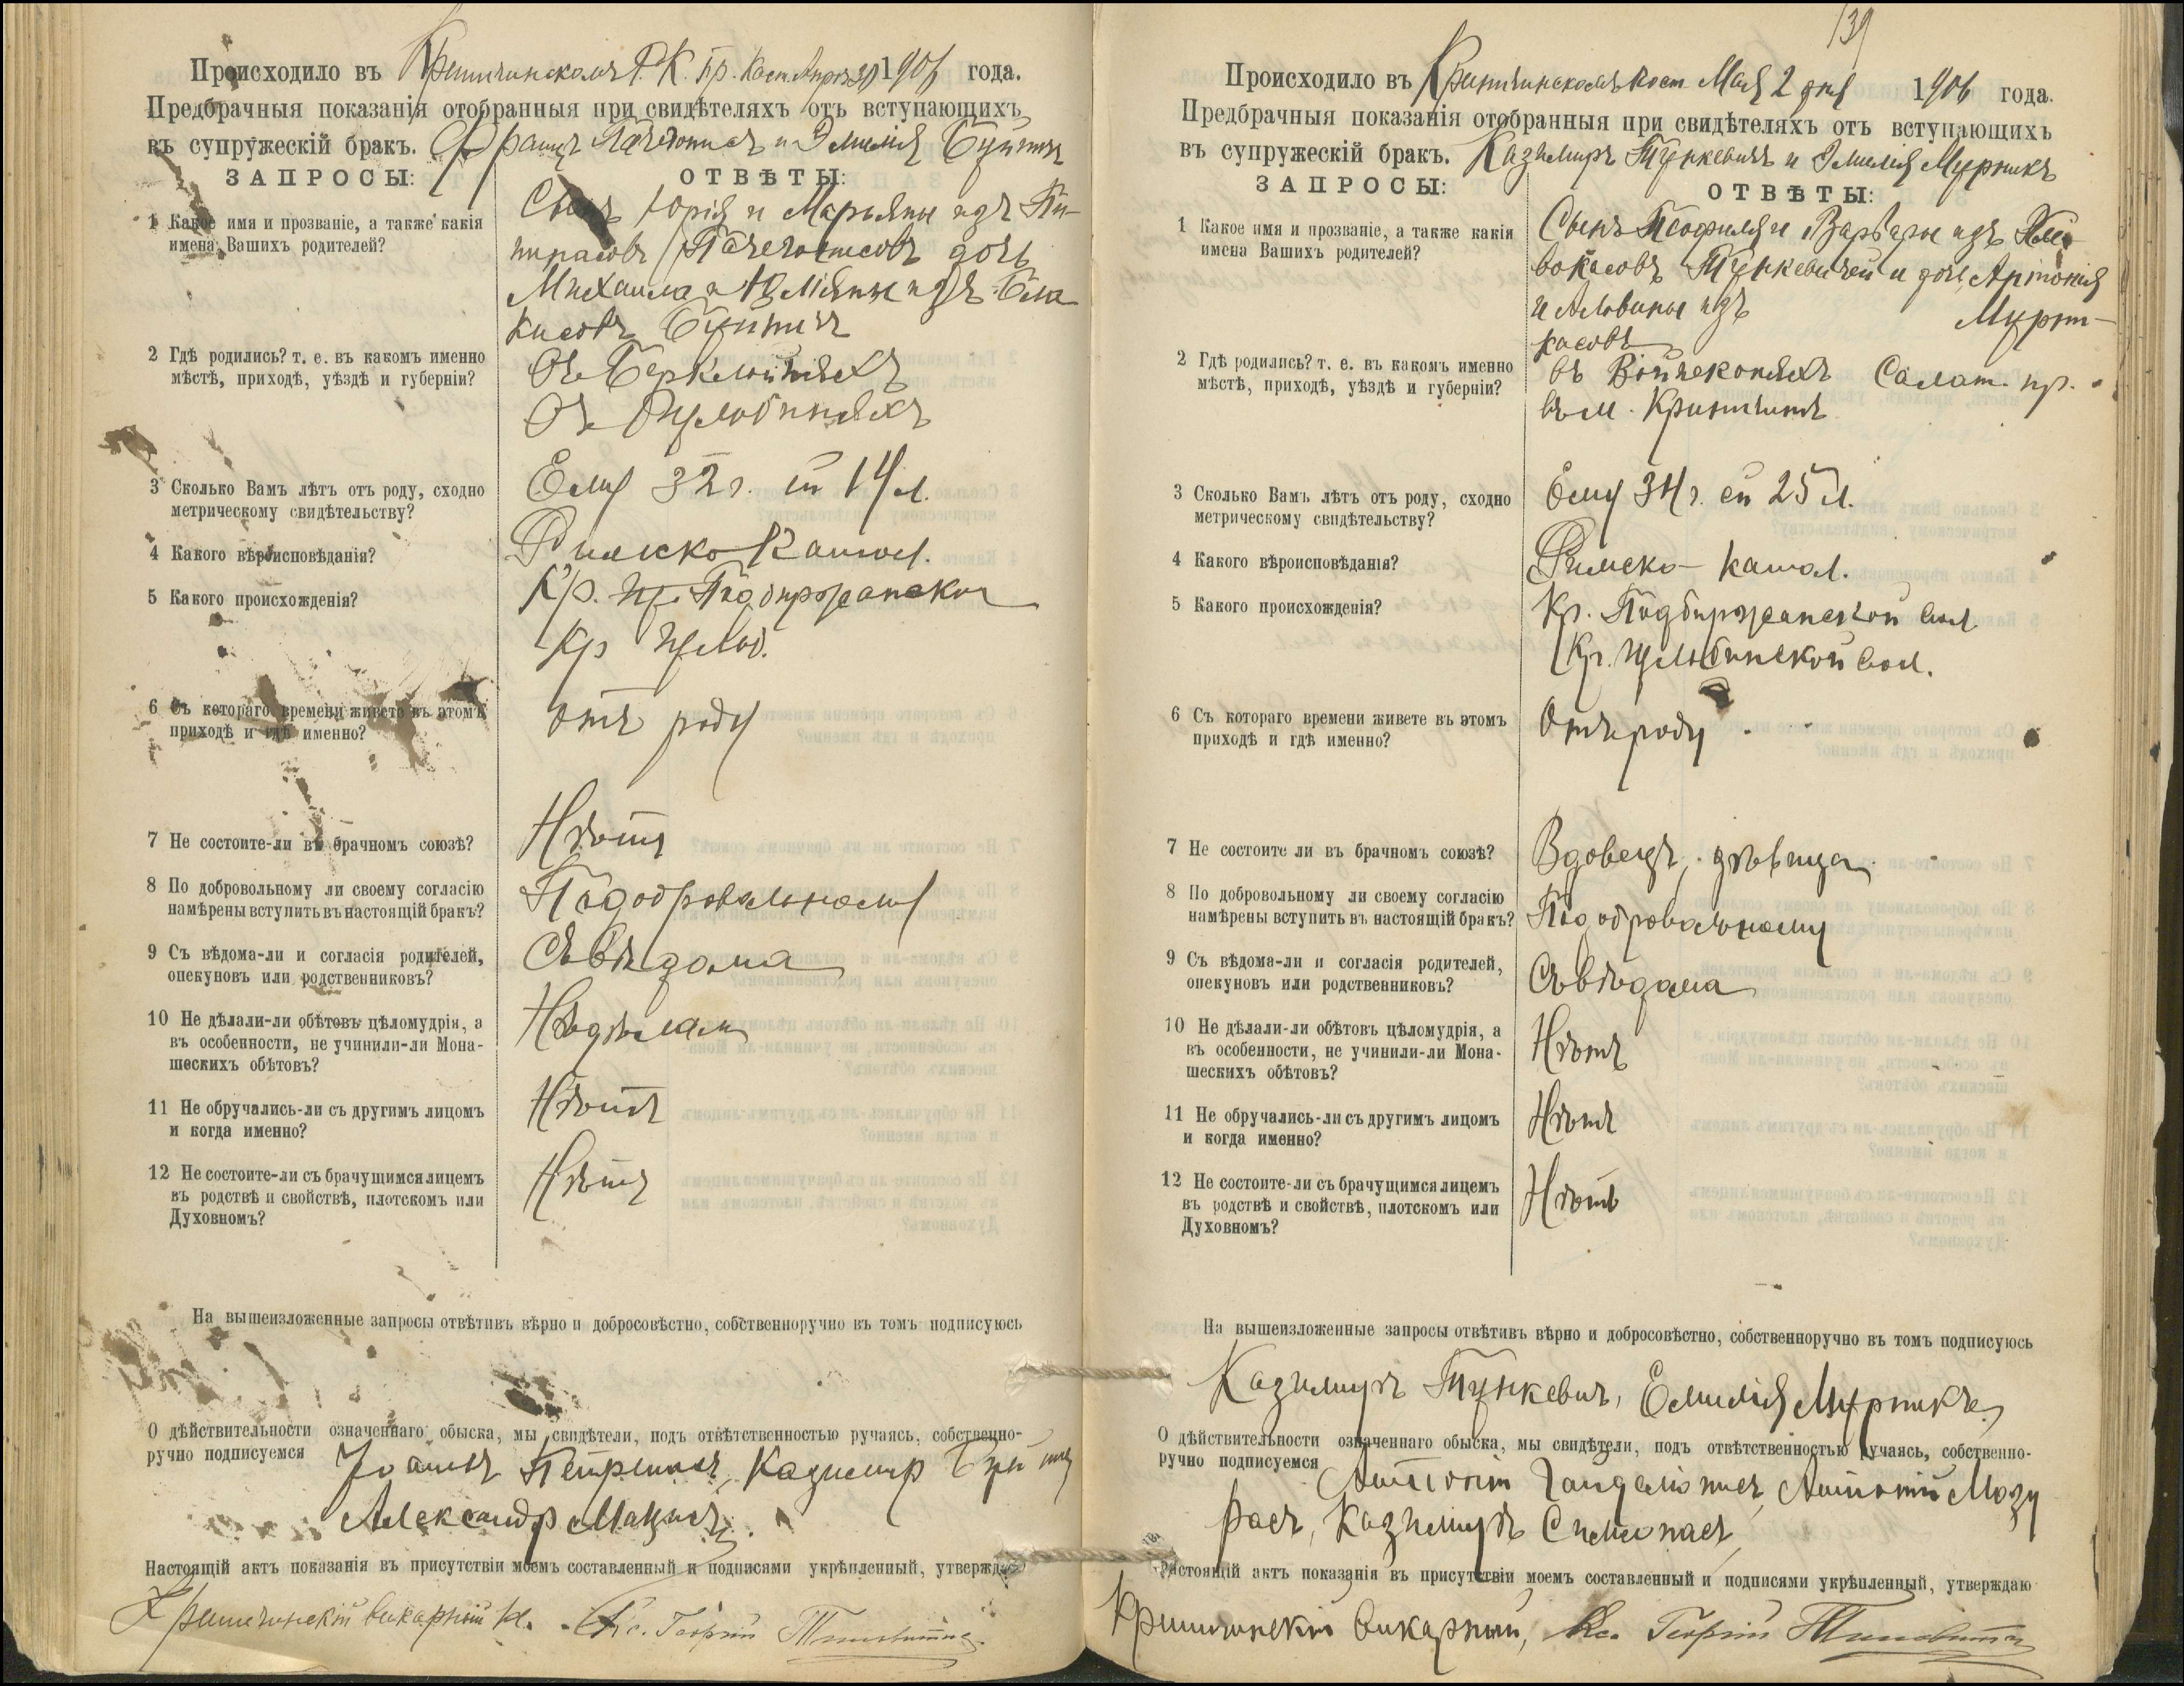 Происходило въ Кринчинскомъ Р. К. Пр. Кост. 1906 года.
Предбрачныя показанія отобранныя при свидѣтеляхъ отъ вступающихъ
въ супружескій бракъ. Францъ и Эмилія
ЗАПРОСЫ: ОТВѢТЫ:
1 Какое имя и прозваніе, а также какія
имена Вашихъ родителей?
Сынъ Юрія и Марьяны изъ
дочь
Михаила и изъ
2 Гдѣ родились? т. е. въ какомъ именно
мѣстѣ, приходѣ, уѣздѣ и губерніи?
3 Сколько Вамъ лѣтъ отъ роду, сходно
метрическому свидѣтельству?
Ему 32 г. ей л.
4 Какого вѣроисповѣданія?
Римско Катол.
5 Какого происхожденія?
Кр. Подбиржанской
Кр
6 Съ котораго времени живете въ этомъ
приходѣ и гдѣ именно?
отъ роду
7 Не состоите-ли въ брачномъ союзѣ?
Нѣтъ
8 По добровольному ли своему согласію
намѣрены вступить въ настоящій бракъ?
По добровольному
9 Съ вѣдома-ли и согласія родителей,
опекуновъ или родственниковъ?
Съ вѣдома
10 Не дѣлали-ли обѣтовъ цѣломудрія, а
въ особенности, не учинили-ли Мона-
шескихъ обѣтовъ?
Не дѣлали
11 Не обручались-ли съ другимъ лицомъ
и когда именно?
Нѣтъ
12 Не состоите-ли съ брачущимся лицемъ
въ родствѣ и свойствѣ, плотскомъ или
Духовномъ?
Нѣтъ
На вышеизложенные запросы отвѣтивъ вѣрно и добросовѣстно, собственноручно въ томъ подписуюсь
О дѣйствительности означеннаго обыска, мы свидѣтели, подъ отвѣтственностью ручаясь, собственно-
ручно подписуемся Казимир
Александр
Настоящій актъ показанія въ присутствіи моемъ составленный и подписями укрѣпленный, утверждаю
Кринчинскій викарный Кс. Георгій
139
Происходило въ Кринчинскомъ Кост Мая 2 дня 1906 года.
Предбрачныя показанія отобранныя при свидѣтеляхъ отъ вступающихъ
въ супружескій бракъ. Казимиръ Тункевичъ и Эмилія Мурникъ
ЗАПРОСЫ: ОТВѢТЫ:
1 Какое имя и прозваніе, а также какія
имена Вашихъ родителей?
Сынъ Теофиля и Варвары изъ
Тункевичей и дочь Антонія
и изъ
2 Гдѣ родились? т. е. въ какомъ именно
мѣстѣ, приходѣ, уѣздѣ и губерніи?
въ Салат. пр.
въ м. Кринчинѣ
3 Сколько Вамъ лѣтъ отъ роду, сходно
метрическому свидѣтельству?
Ему 34 г. ей 25 л.
4 Какого вѣроисповѣданія?
Римско-катол.
5 Какого происхожденія?
Кр. Подбиржанской вол
Кр. вол.
6 Съ котораго времени живете въ этомъ
приходѣ и гдѣ именно?
Отъ роду
7 Не состоите ли въ брачномъ союзѣ?
Вдовецъ, дѣвица
8 По добровольному ли своему согласію
намѣрены вступить въ настоящій бракъ?
По добровольному
9 Съ вѣдома-ли и согласія родителей,
опекуновъ или родственниковъ?
Съ вѣдома
10 Не дѣлали-ли обѣтовъ цѣломудрія, а
въ особенности, не учинили-ли Мона-
шескихъ обѣтовъ?
Нѣтъ
11 Не обручались-ли съ другимъ лицомъ
и когда именно?
Нѣтъ
12 Не состоите-ли съ брачущимся лицемъ
въ родствѣ и свойствѣ, плотскомъ или
Духовномъ?
Нѣтъ
На вышеизложенные запросы отвѣтивъ вѣрно и добросовѣстно, собственноручно въ томъ подписуюсь
Казимиръ Тункевич, Емилія Мурникъ
О дѣйствительности означеннаго обыска, мы свидѣтели, подъ отвѣтственностью ручаясь, собственно-
ручно подписуемся Антоній Мозу
расъ, Казимиръ Симонасъ
Настоящій актъ показанія въ присутствіи моемъ составленный и подписями укрѣпленный, утверждаю
Кринчинскій викарный, Кс. Георгій